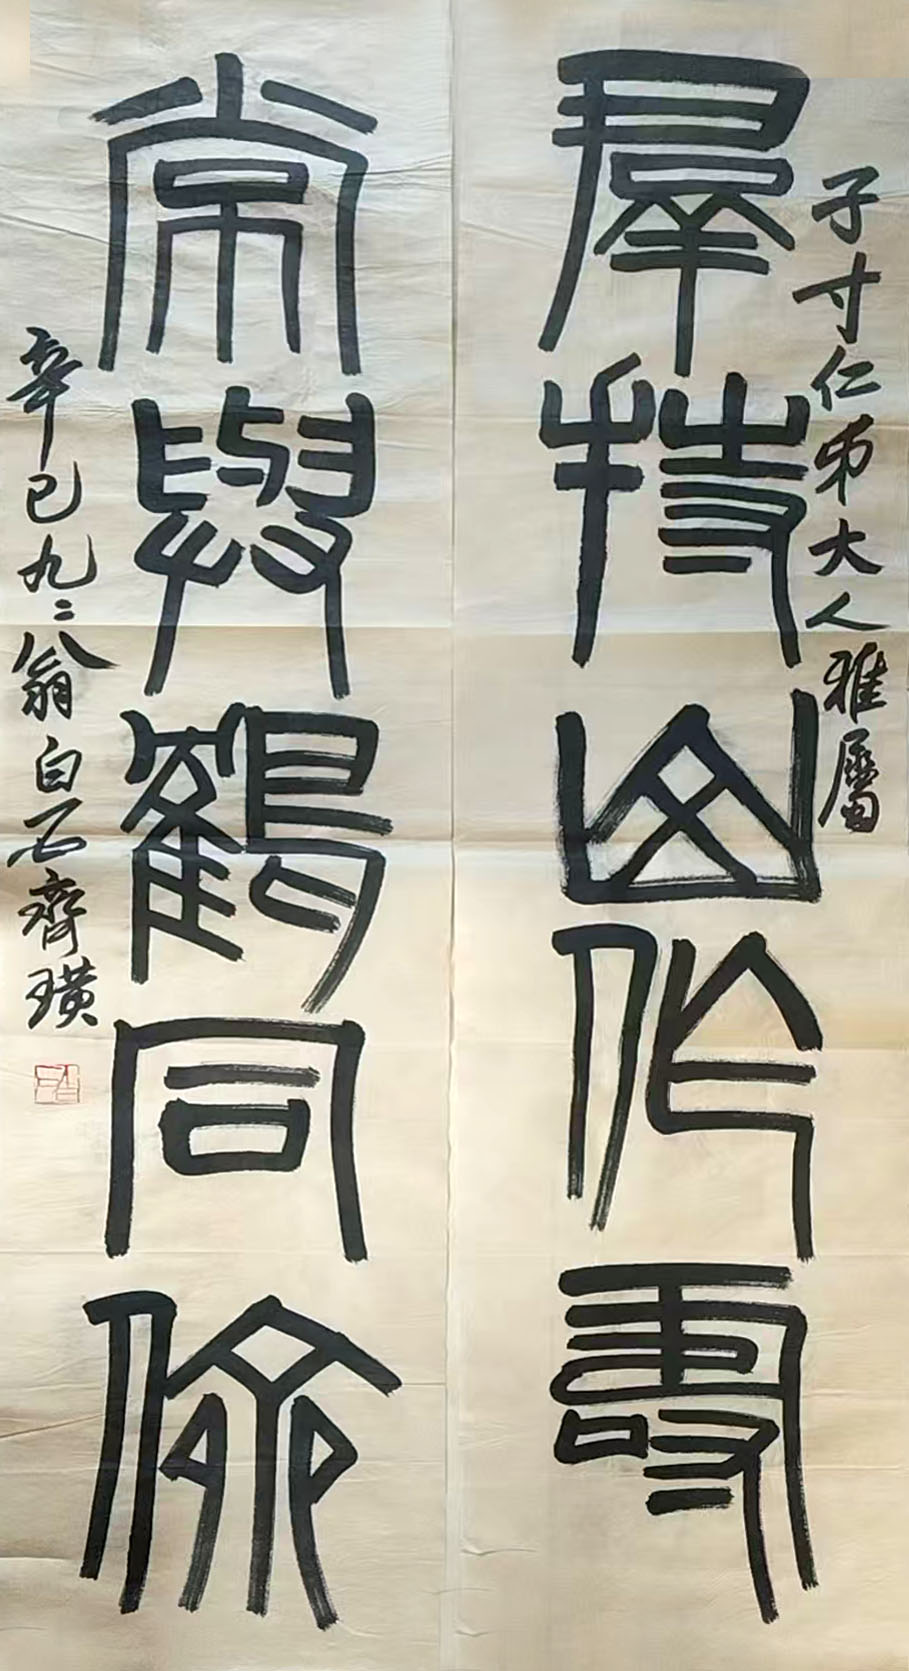 子寸仁弟大人雅屬
羣持山作壽
常與鶴同儕
辛巳九二翁白石齊璜